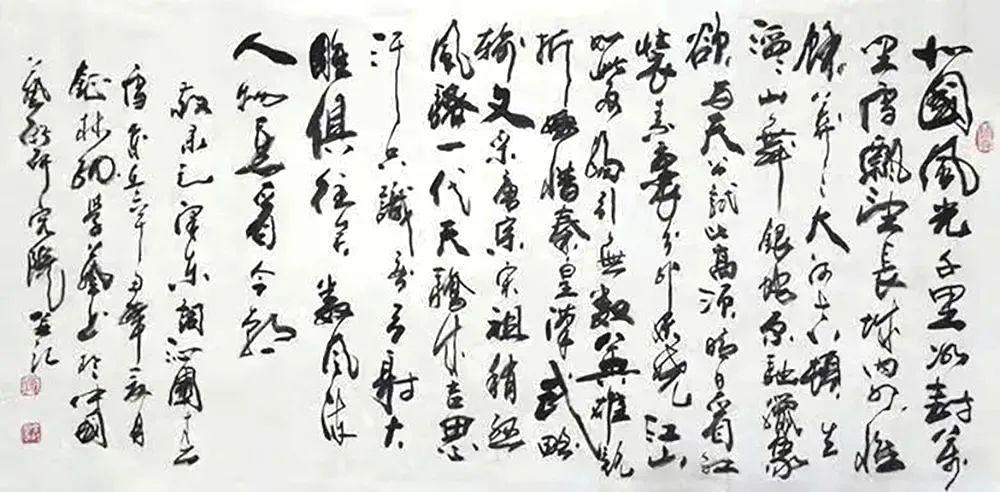 北國風光千里冰封萬
里雪飄望長城内外惟
餘莽々大河上下頓失
滔々山舞銀蛇原馳蠟象
欲與天公試比高須晴日看紅
裝素裹分外妖嬈江山
如此多嬌引無數英雄競
折腰惜秦皇漢武略
輸文采唐宗宋祖稍遜
風騷一代天驕成吉思
汗只識彎弓射大
雕俱往矣數風流
人物還看今朝
敬录毛澤東詞沁園春
雪
學藝書於中國
藝術研究院